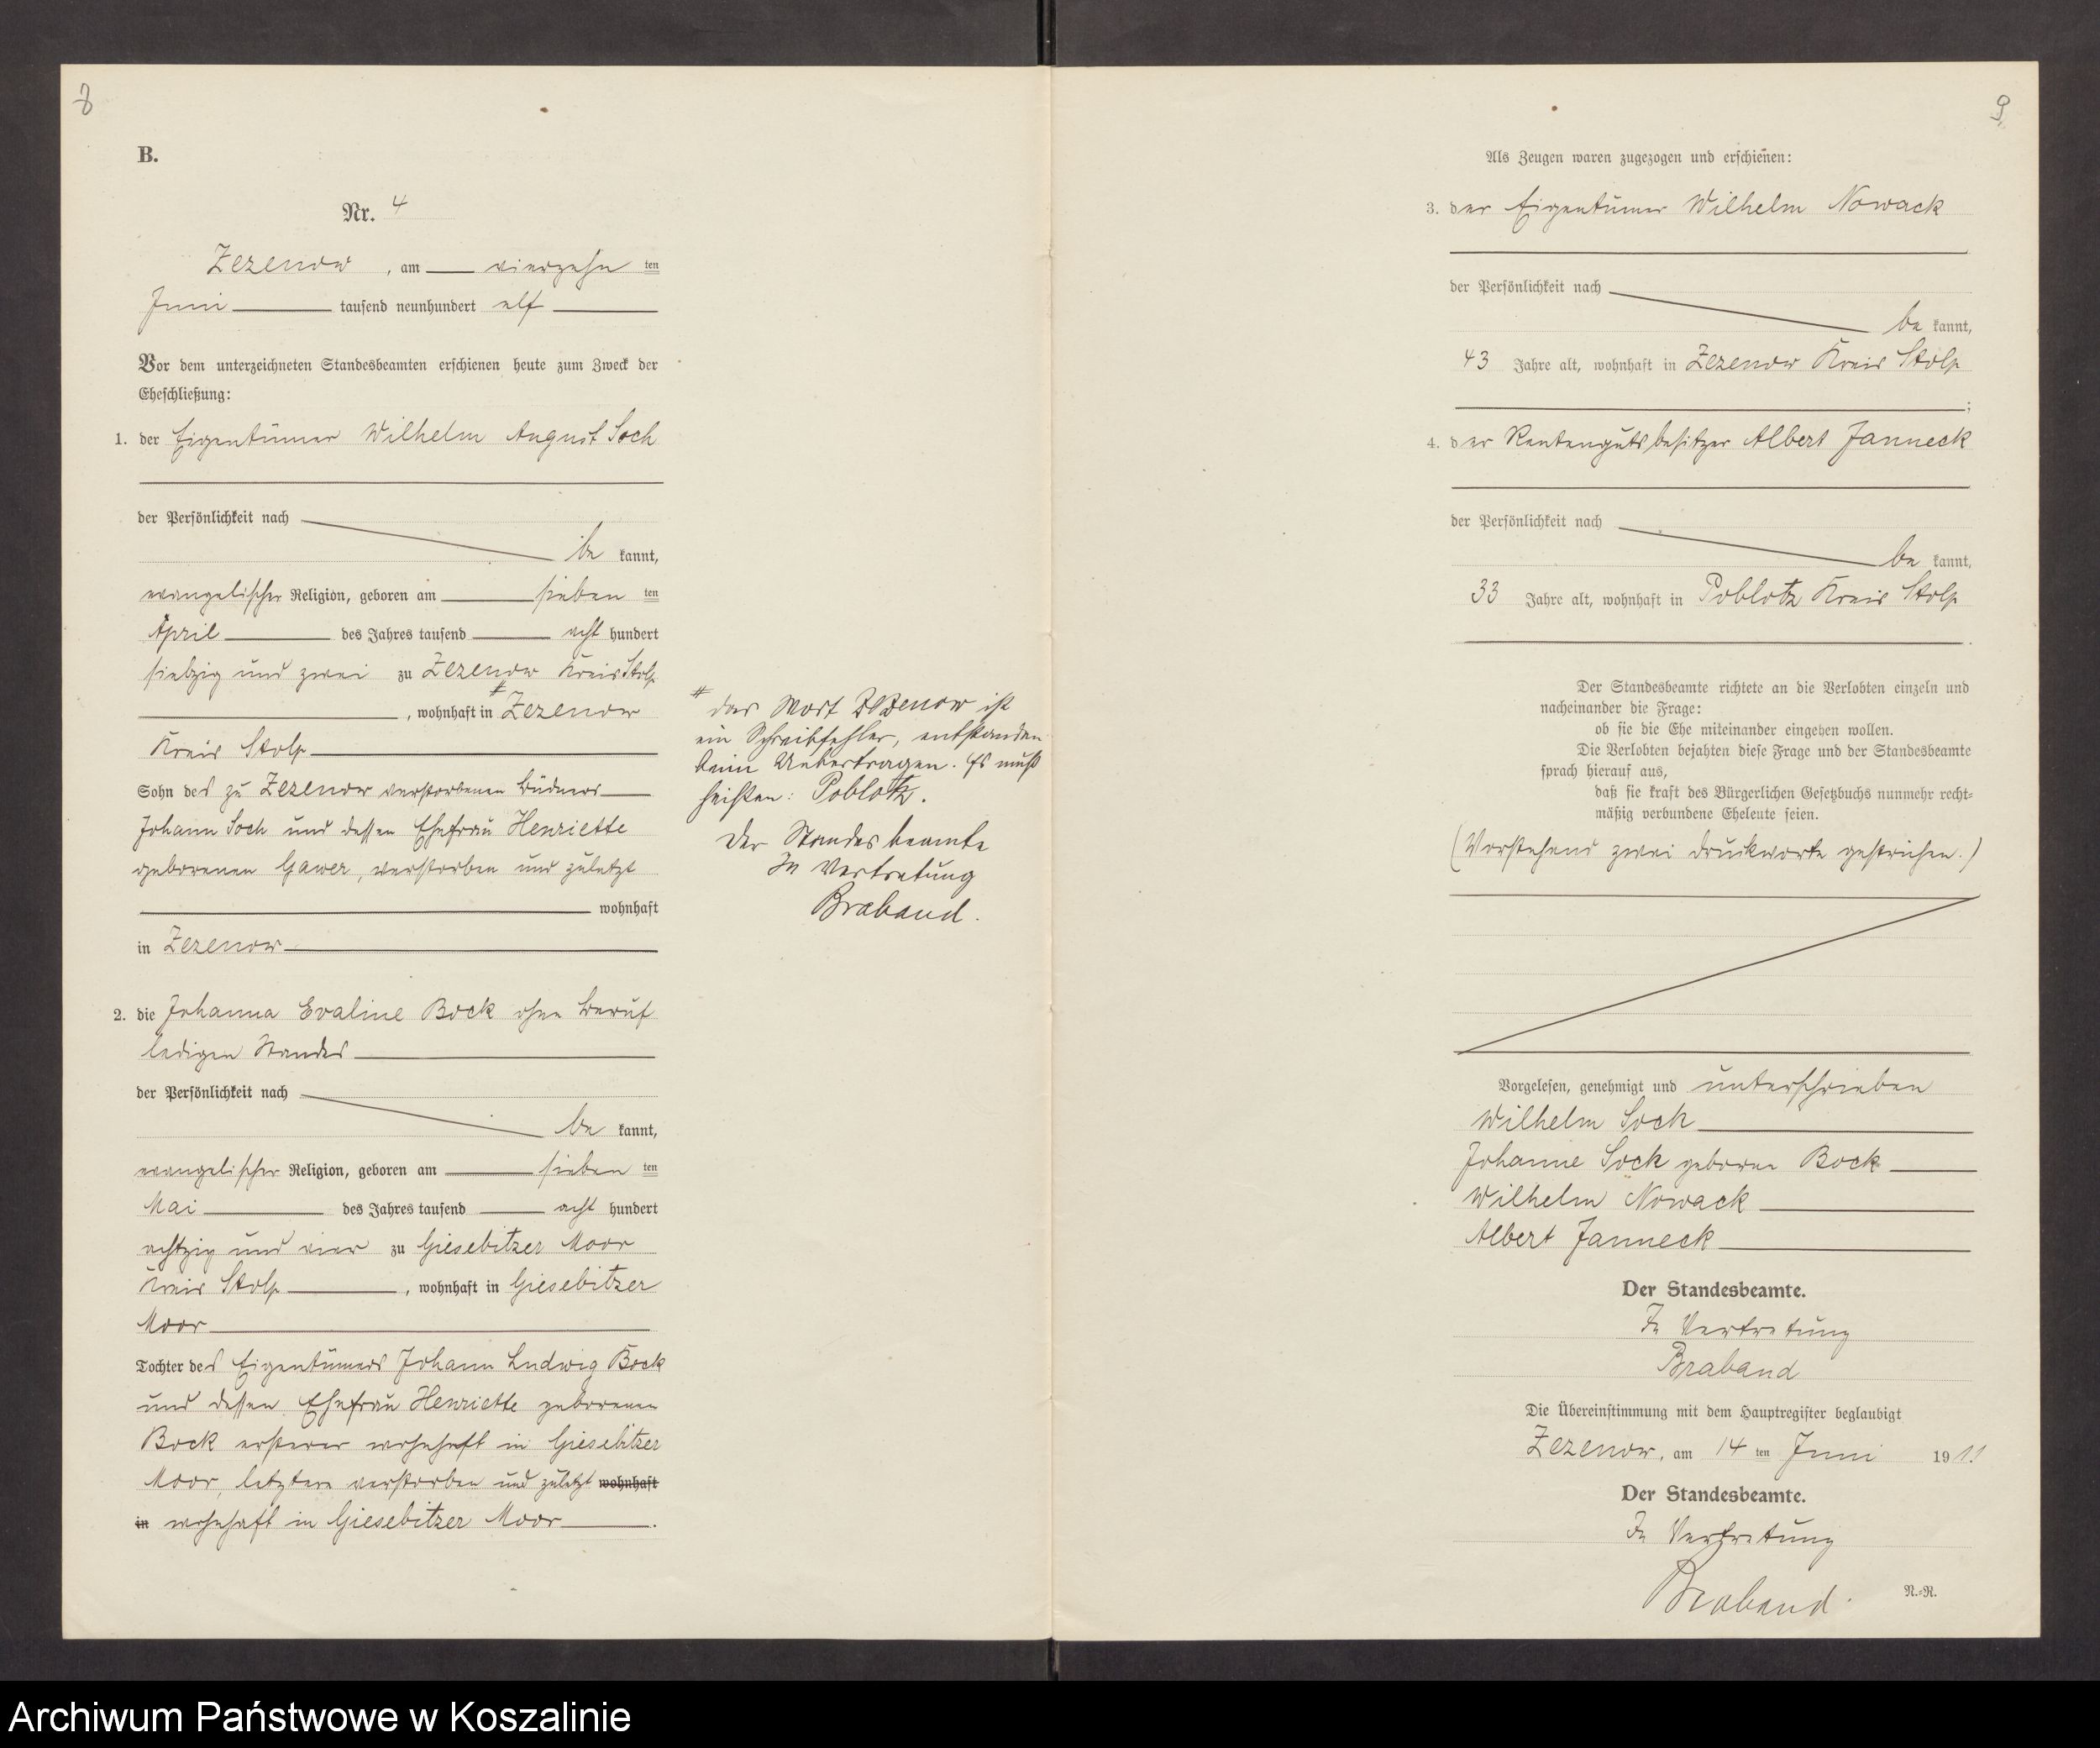 8
B.
Nr. 4
Zezenow, am vierzehn ten
Juni tausend neunhundert elf
Vor dem unterzeichneten Standesbeamten erschienen heute zum Zweck der
Eheschließung:
1. der Eigentümer Wilhelm August Sock
der Persönlichkeit nach
be kannt,
evangelischer Religion, geboren am sieben ten
April des Jahres tausend acht hundert
siebzig und zwei zu Zezenow Kreis Stolp
, wohnhaft in # Zezenow
Kreis Stolp
Sohn des zu Zezenow verstorbenen Büdners
Johann Sock und dessen Ehefrau Henriette
geborenen Gawer, verstorben und zuletzt
wohnhaft
in Zezenow
2. die Johanna Evaline Bock ohne Beruf
ledigen Standes
der Persönlichkeit nach
be kannt,
evangelischer Religion, geboren am sieben ten
Mai des Jahres tausend acht hundert
achtzig und vier zu Giesebitzer Moor
Kreis Stolp, wohnhaft in Giesebitzer
Moor
Tochter des Eigentümers Johann Ludwig Bock
und dessen Ehefrau Henriette geborenen
Bock ersterer wohnhaft in Giesebitzer
Moor, letztere verstorben und zuletzt wohnhaft
in wohnhaft in Giesebitzer Moor.
# das Wort Zezenow ist
ein Schreibfehler, entstanden
beim Uebertragen. Es muß
heißen: Poblotz.
Der Standesbeamte
In Vertretung
Braband.
9
Als Zeugen waren zugezogen und erschienen:
3. der Eigentümer Wilhelm Nowack
der Persönlichkeit nach
be kannt,
43 Jahre alt, wohnhaft in Zezenow Kreis Stolp
;
4. der Rentengutsbesitzer Albert Janneck
der Persönlichkeit nach
be kannt,
33 Jahre alt, wohnhaft in Poblotz Kreis Stolp
.
Der Standesbeamte richtete an die Verlobten einzeln und
nacheinander die Frage:
ob sie die Ehe miteinander eingehen wollen.
Die Verlobten bejahten diese Frage und der Standesbeamte
sprach hierauf aus,
daß sie kraft des Bürgerlichen Gesetzbuchs nunmehr recht-
mäßig verbundene Eheleute seien.
(Vorstehend zwei Druckworte gestrichen.)
Vorgelesen, genehmigt und unterschrieben
Wilhelm Sock
Johanne Sock geborene Bock
Wilhelm Nowack
Albert Janneck
Der Standesbeamte.
In Vertretung
Braband
Die Übereinstimmung mit dem Hauptregister beglaubigt
Zezenow, am 14 ten Juni 1911.
Der Standesbeamte.
In Vertretung
Braband.
N.-R.
Archiwum Państwowe w Koszalinie